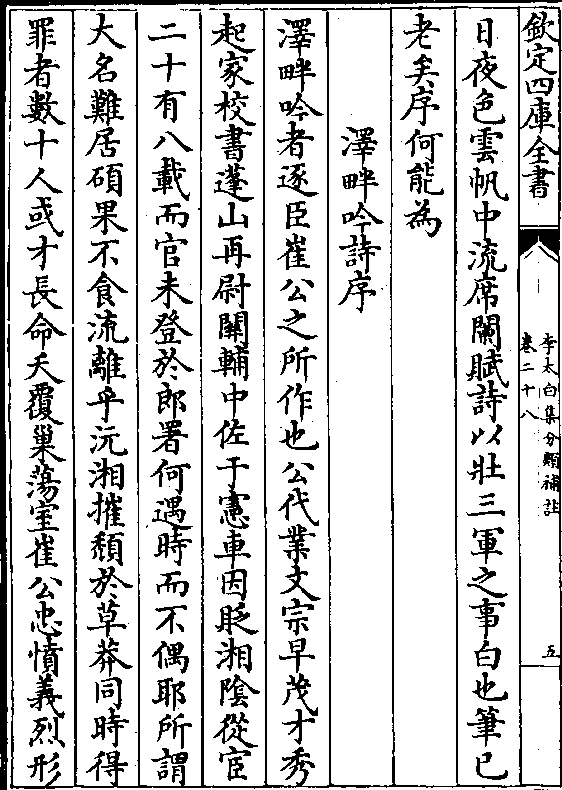 欽定四庫全書
李太白集分類補註
卷二十八
五
日夜色雲帆中流席闌賦詩以壯三軍之事白也筆已
老矣序何能為
澤畔吟詩序
澤畔吟者逐臣崔公之所作也公代業文宗早茂才秀
起家校書蓬山再尉關輔中佐于憲車因貶湘陰從宦
二十有八載而官未登於郎署何遇時而不偶耶所謂
大名難居碩果不食流離乎沅湘摧頽於草莽同時得
罪者數十人或才長命夭覆巢蕩室崔公忠憤義烈形